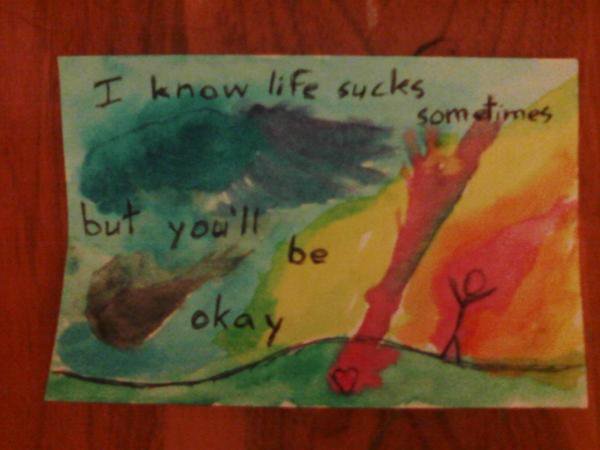 I know life sucks
sometimes
but you'll
be
okay